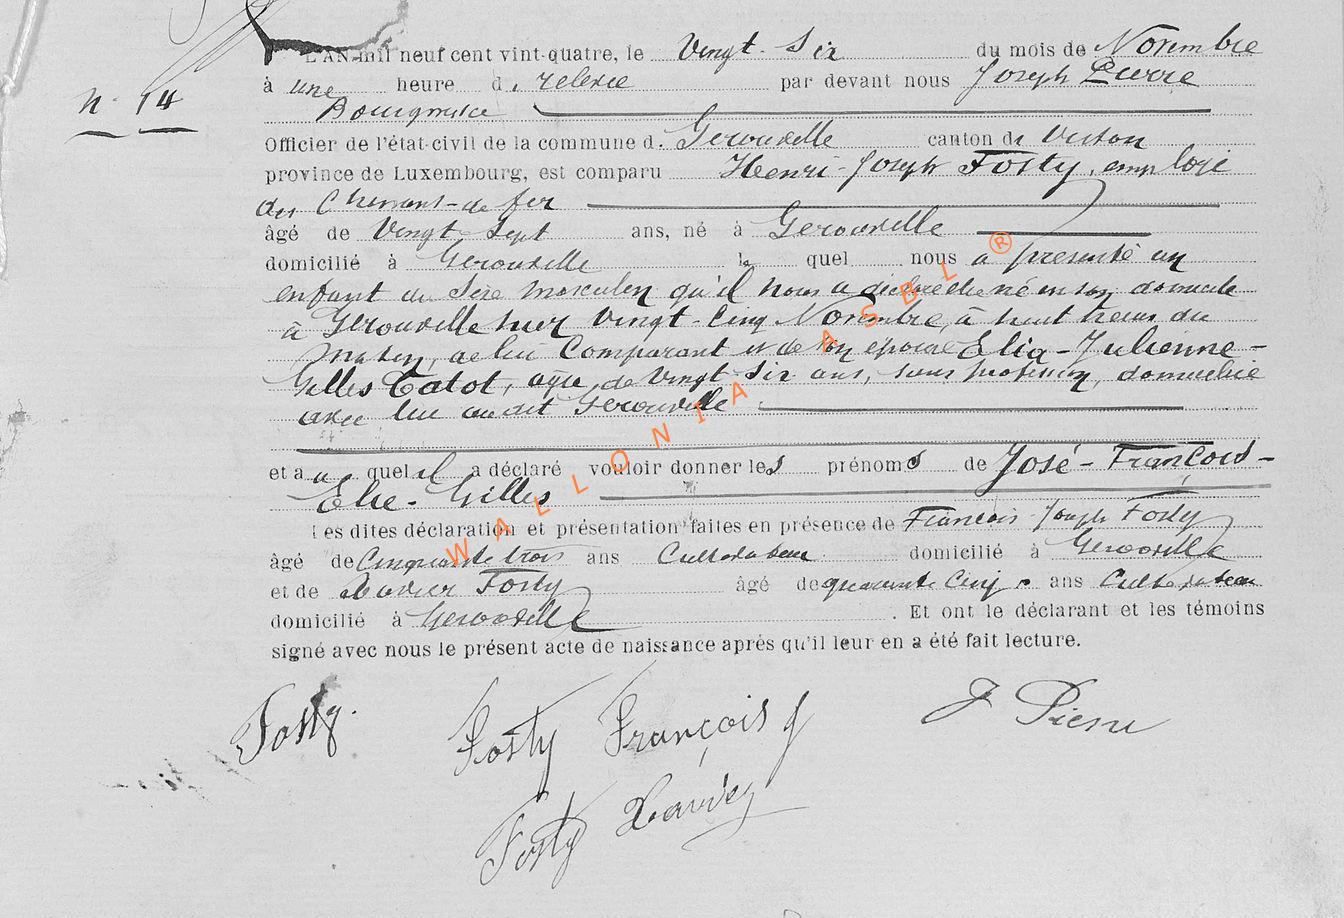 L'AN mil neuf cent vint-quatre, le Vingt-Six du mois de Novembre
à une heure d. relevée par devant nous Joseph Pierre
N° 14
Bourgmestre
Officier de l'état-civil de la commune d. Gerouville canton de Virton
province de Luxembourg, est comparu Henri-Joseph Fosty, employé
des Chemins-de fer
âgé de Vingt Sept ans, né à Gerouville
domicilié à Gerouville le quel nous a présenté un
enfant du Sexe masculin qu'il nous a déclaré être né en son domicile
à Gerouville hier Vingt-Cinq Novembre, à huit heures du
matin, de lui Comparant et de son épouse Elia-Julienne-
Gilles Catot, âgée de Vingt-Six ans, sans profession, domiciliée
avec lui au dit Gerouville
et a u quel il a déclaré vouloir donner les prénoms de José-François-
Elie-Gilles
Les dites déclaration et présentation faites en présence de François-Joseph Fosty
âgé de Cinquante trois ans Cultivateur domicilié à Gerouville
et de Xavier Fosty âgé de quarante Cinq ans Cultivateur
domicilié à Gerouville . Et ont le déclarant et les témoins
signé avec nous le présent acte de naissance après qu'il leur en a été fait lecture.
Fosty. Fosty François J J Pierre
Fosty Xavier
WALLONIA ASBL ®